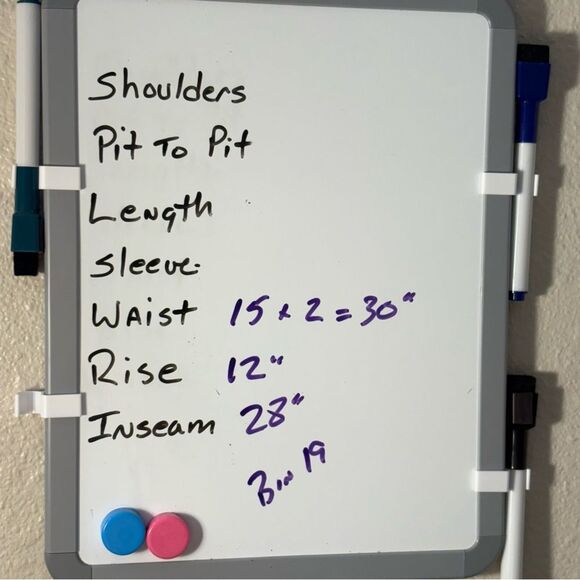 Shoulders
Pit To Pit
Length
Sleeve
Waist 15 x 2 = 30"
Rise 12"
Inseam 28"
Bin 19